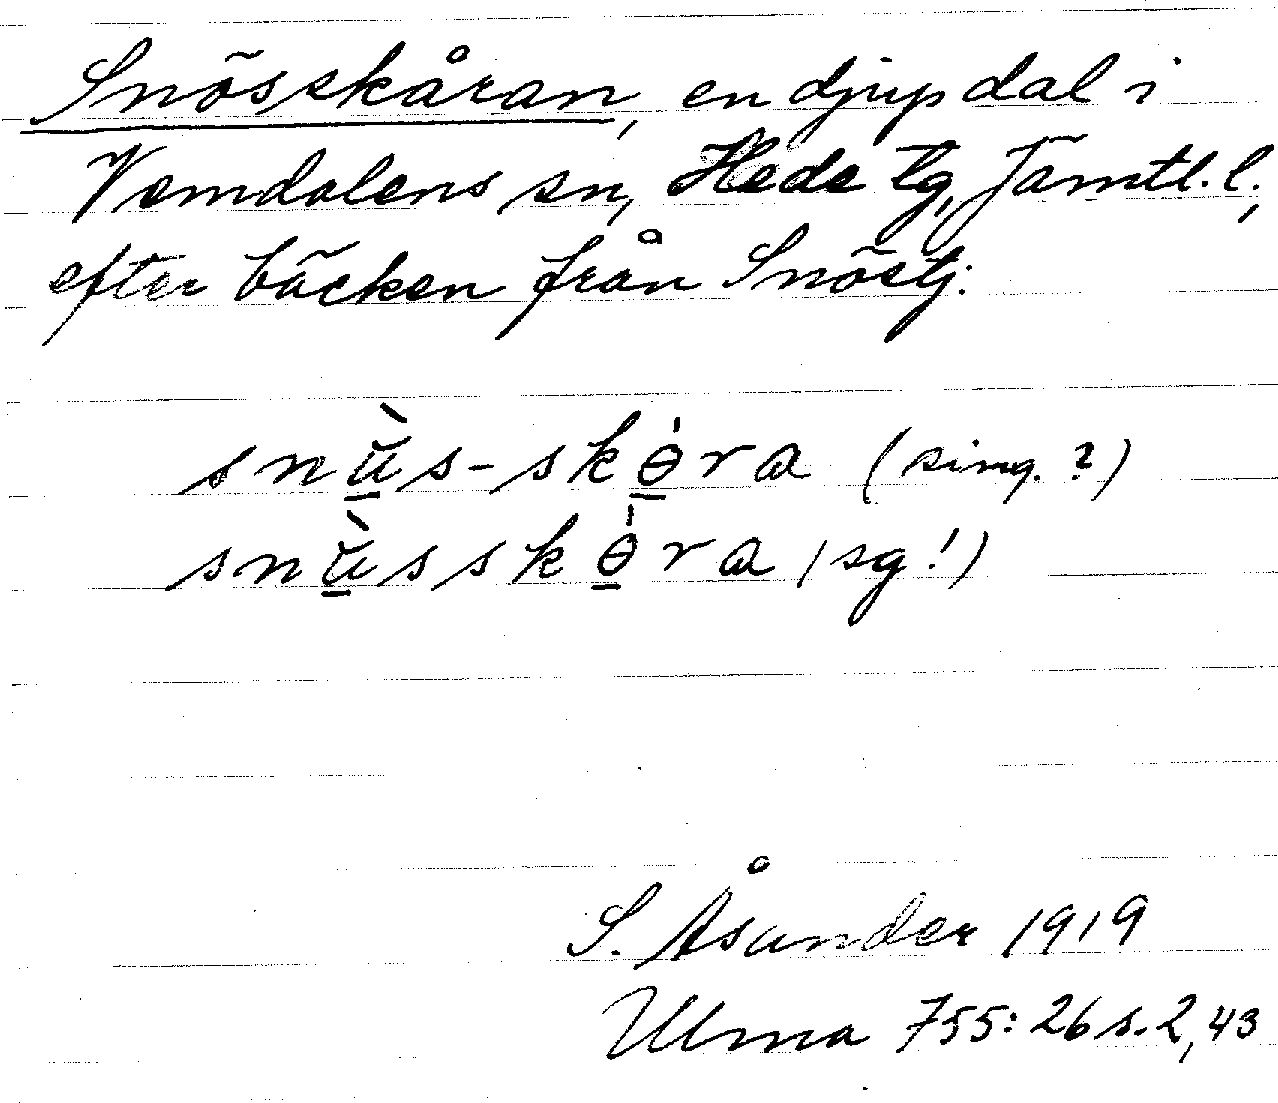 Snösskåran, en djup dal i
Vemdalens sn, Hede tg, Jämtl. l.,
efter bäcken från Snöstj:
snù̲s-skө̲̍ra (sing. ?)
snù̲sskө̲̍ra (sg!)
S. Åsander 1919
Ulma 755: 26 s. 2, 43